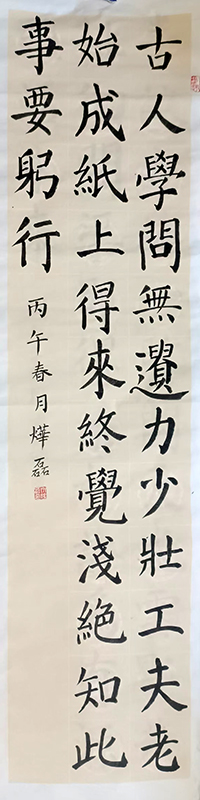 古人學問無遺力少壯工夫老
始成紙上得來終覺淺絕知此
事要躬行
丙午春月燁磊